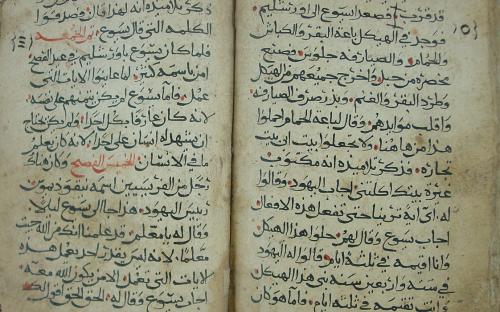 قد قربت فصعد يسوع الى اورشليم
فوجد في الهيكل باعة البقر والكباش
والحمام والصيارفه جلوس فصنع
مخصره من حبل واخرج جميعهم من الهيكل
وطرد البقر والغنم وبذر صرف الصيارفه
واقلب موايدهم وقال لباعة الحمام احملوا
هذا من هاهنا ولا تجعلوا بيت ابي بيت
تجاره فذكر تلاميذه انه مكتوب
غيرة بيتك اكلتني اجاب اليهود وقالوا
له اي اية ترينا حتى تفعل هذه الافعال
اجاب يسوع وقال لهم حلوا هذا الهيكل
وانا اقيمه في ثلثة ايام قالوا له اليهود
في ستة واربعين سنة بني هذا الهيكل
وانت تقيمه في ثلثة ايام فاما هو كان
ذكر تلاميذه انه لهذا كان وصدقوا
الكلمه التي قال يسوع
فلما كان يسوع باورشليم في عيد الفصح
امن باسمه كثير لما عاينوا الايات التي
عمل فاما يسوع فلم يكن على نفسه
لانه كان ولم يكن يحتاج
ان يشهد له انسان على لانه كان يعلم
ما في الانسان الخميس الفصح وكان هناك
رجل من الفريسيين اسمه نيقوديموس
رييس اليهود هذا جا الى يسوع ليلا
وقال له يا معلم قد علمنا انك من الله جيت
معلما لانه ليس يقدر احد يعمل هذه
الايات التي تعمل الا من يكون الله معه
اجاب يسوع وقال له الحق الحق اقول لك